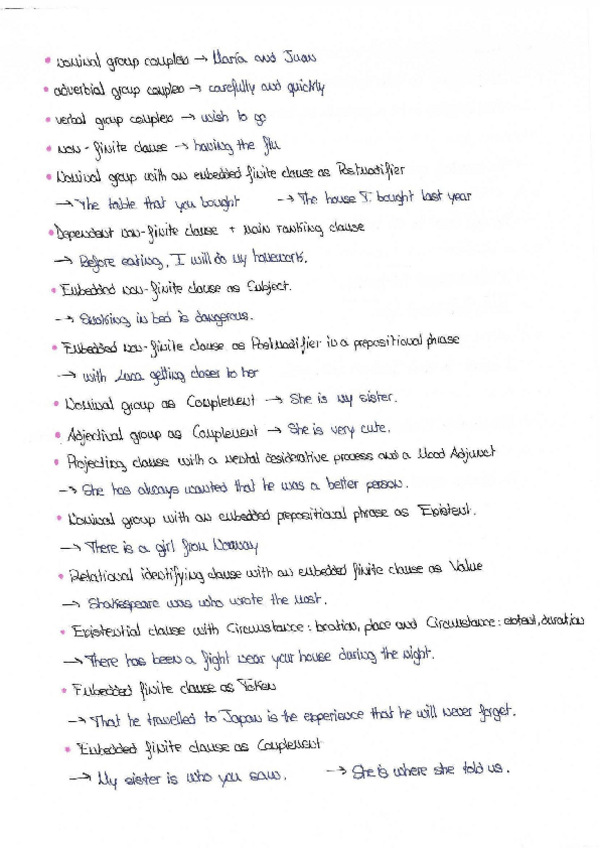 • nominal group complex → María and Juan
• adverbial group complex → carefully and quickly
• verbal group complex → wish to go
• non-finite clause → having the flu
• Nominal group with an embedded finite clause as Postmodifier
→ The table that you bought → The house I bought last year
• Dependent non-finite clause + main ranking clause
→ Before eating, I will do my homework.
• Embedded non-finite clause as Subject.
→ Smoking in bed is dangerous.
• Embedded non-finite clause as Postmodifier in a prepositional phrase
→ with Luca getting closer to her
• Nominal group as Complement → She is my sister.
• Adjectival group as Complement → She is very cute.
• Projecting clause with a mental desiderative process and a Mood Adjunct
→ She has always wanted that he was a better person.
• Nominal group with an embedded prepositional phrase as Existent.
→ There is a girl from Norway
• Relational identifying clause with an embedded finite clause as Value
→ Shakespeare was who wrote the most.
• Existential clause with Circumstance: location, place and Circumstance: extent, duration
→ There has been a fight near your house during the night.
• Embedded finite clause as Token
→ That he travelled to Japan is the experience that he will never forget.
• Embedded finite clause as Complement
→ My sister is who you saw. → She is where she told us.